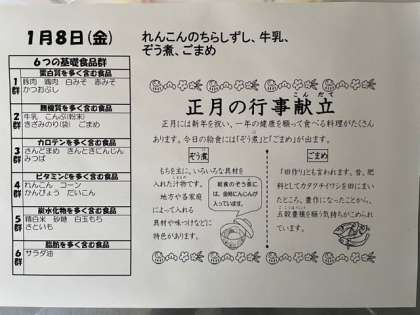 1月8日(金)
れんこんのちらしずし、牛乳、
ぞう煮、ごまめ
6つの基礎食品群
蛋白質を多く含む食品
1群
豚肉 鶏肉 白みそ 赤みそ
かつおぶし
無機質を多く含む食品
2群
牛乳 こんぶ(粉末)
きざみのり(袋) ごまめ
カロテンを多く含む食品
3群
さんどまめ きんときにんじん
みつば
ビタミンCを多く含む食品
4群
れんこん コーン
かんぴょう だいこん
炭水化物を多く含む食品
5群
精白米 砂糖 白玉もち
さといも
脂肪を多く含む食品
6群
サラダ油
こんだて
正月の行事献立
正月には新年を祝い、一年の健康を願って食べる料理がたくさん
あります。今日の給食には「ぞう煮」と「ごまめ」が出ます。
ぞう煮
もちを主に、いろいろな具材を
入れた汁物です。
地方や各家庭
によって入れる
具材や味つけなどに
特色があります。
給食のぞう煮に
は、金時にんじんが
入っています。
ごまめ
「田作り」とも言われます。昔、肥
料としてカタクチイワシを田にまい
たところ、豊作になったことから、
五穀豊穣を願う気持ちがこめられ
ています。